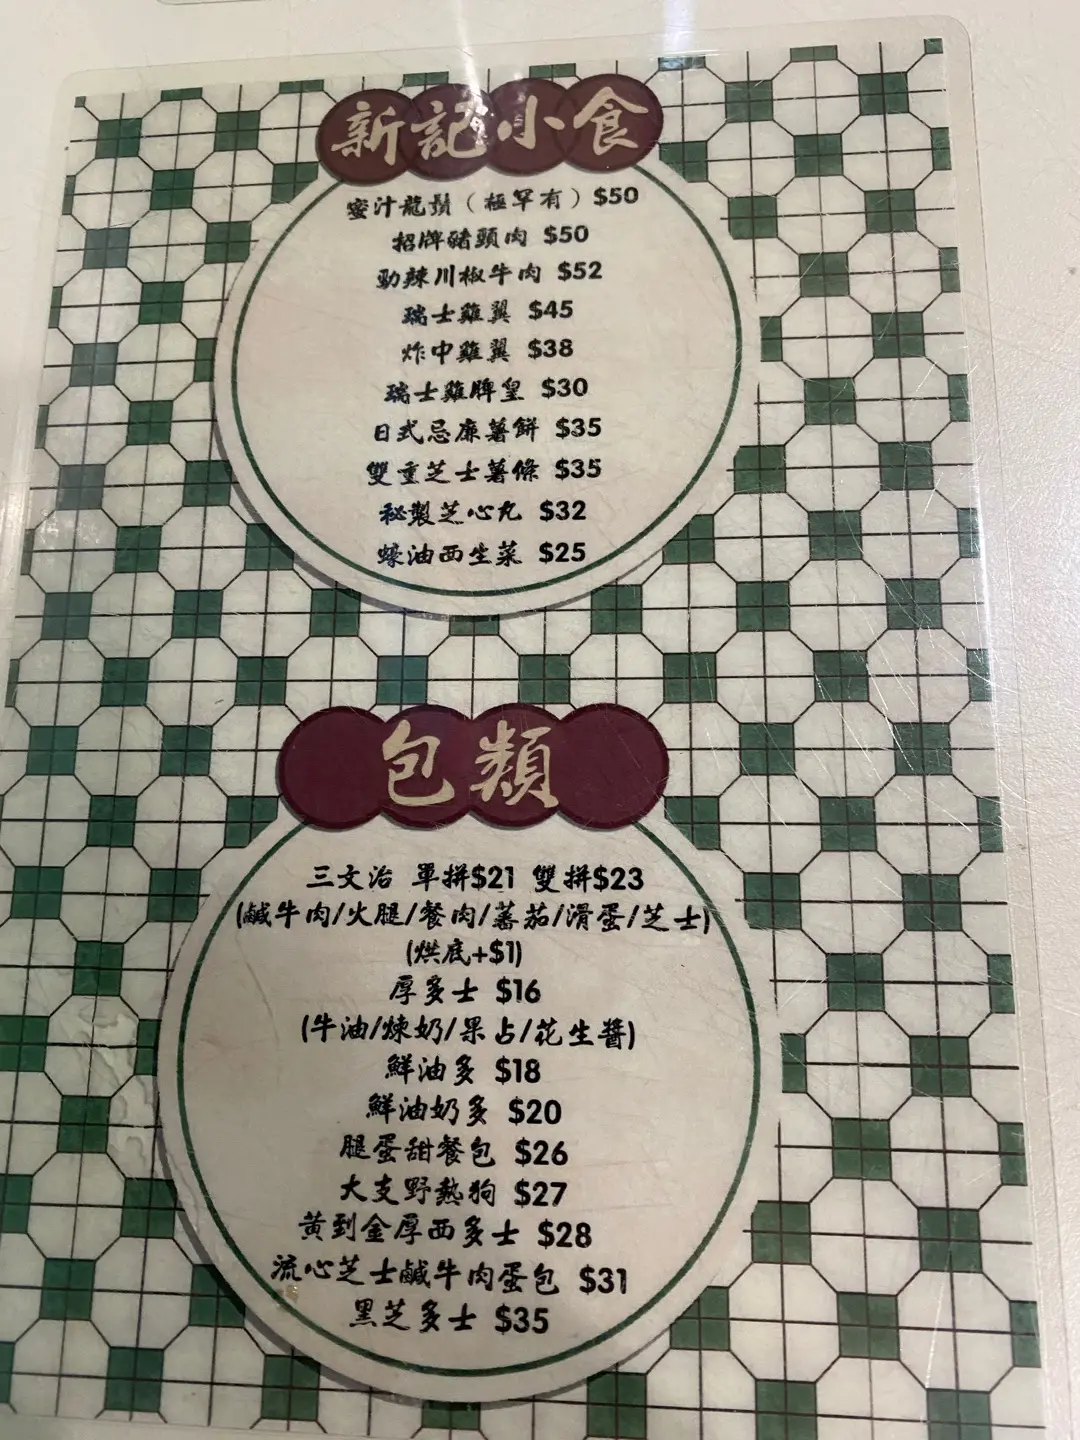 新記小食
蜜汁龍鬚(極罕有)$50
招牌豬頸肉 $50
勁辣川椒牛肉 $52
瑞士雞翼 $45
炸中雞翼 $38
瑞士雞髀皇 $30
日式忌廉薯餅 $35
雙重芝士薯條 $35
秘製芝心丸 $32
蠔油西生菜 $25
包類
三文治 單拼$21 雙拼$23
(鹹牛肉/火腿/餐肉/蕃茄/滑蛋/芝士)
(烘底+$1)
厚多士 $16
(牛油/煉奶/果占/花生醬)
鮮油多 $18
鮮油奶多 $20
腿蛋甜餐包 $26
大支野熱狗 $27
黃到金厚西多士 $28
流心芝士鹹牛肉蛋包 $31
黑芝多士 $35